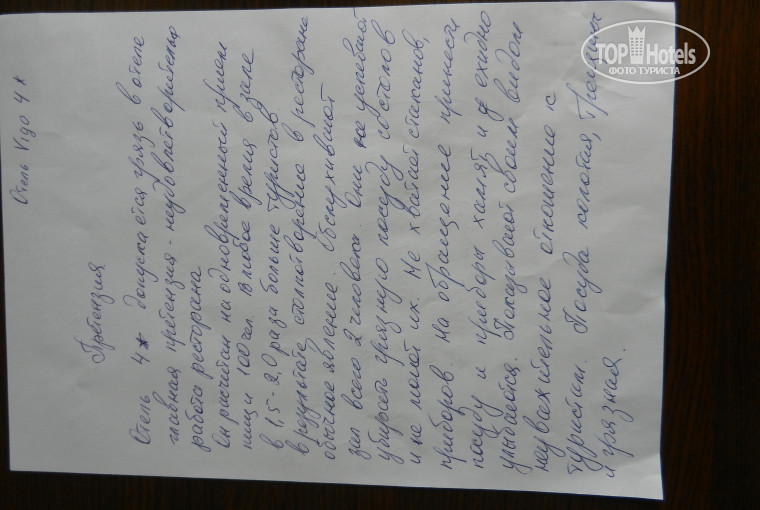 Отель Vigo 4*
Претензия
Отель 4* допускается грязь в отеле
главная претензия - неудовлетворительная
работа ресторана
Он расчитан на одновременный прием
пищи 100 чел. в любое время в зале
в 1,5-2,0 раза больше туристов
в результате столпотворение в ресторане
обычное явление. Обслуживают
зал всего 2 человека. Они не успевают
убирать грязную посуду со столов
и не моют их. Не хватает стаканов,
приборов. На обращение принести
посуду и приборы хамят и ехидно
улыбаются. Показывают своим видом
неуважительное отношение к
туристам. Посуда колотая,
и грязная.
TOP Hotels
ФОТО ТУРИСТА